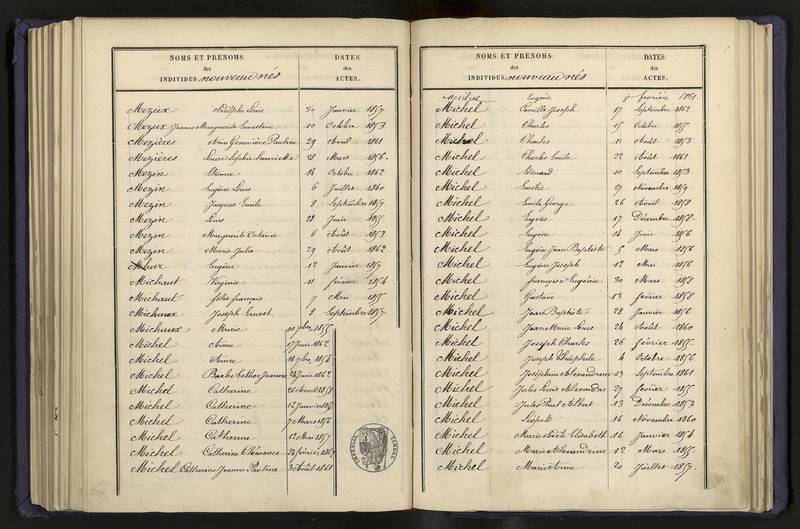 NOMS ET PRENOMS
des
INDIVIDUS nouveau nés
DATES
des
ACTES.
Mezeix Adolphe Louis 30 Janvier 1857
Mezeix Jeanne Marguerite Ernestine 10 Octobre 1853
Mezières Anne Geneviève Pauline 29 Avril 1861
Mezières Louise Sophie Henriette 28 Mars 1856
Mezin Etienne 14 Octobre 1862
Mezin Eugène Louis 6 Juillet 1860
Mezin Jacques Emile 8 Septembre 1857
Mezin Louis 28 Juin 1855
Mezin Marguerite Octavie 6 Août 1853
Mezin Marie Julie 29 Août 1862
Eugène 12 Janvier 1857
Michaut Virginie 11 février 1854
Michaut félix françois 7 Mai 1855
Michaux Joseph Ernest 8 Septembre 1857
Michaux Marie 10 7bre 1855
Michel Anne 17 Juin 1862
Michel Anne 18 7bre 1854
Michel Barbe Esther Jeanne 24 Juin 1862
Michel Catherine 26 1858
Michel Catherine 12 Janvier
Michel Catherine 7 Mars 1856
Michel Catherine 12 Mai 1857
Michel Catherine Clémence 24 février 1857
Michel Catherine Jeanne Pauline 30 Août 1861
NOMS ET PRENOMS
des
INDIVIDUS nouveau nés
DATES
des
ACTES.
Eugène 8 février 1861.
Michel Camille Joseph 17 Septembre 1862
Michel Charles 15 Octobre 1855
Michel Charles 11 Août 1853
Michel Charles Emile 22 Août 1861
Michel Edouard 10 Septembre 1853
Michel 27 Novembre 1859
Michel Emile George 26 Avril 1858
Michel Eugène 17 Décembre 1858
Michel Eugène 14 Juin 1856
Michel Eugène Jean Baptiste 5 Mars 1856
Michel Eugène Joseph 12 Mai 1856
Michel françoise Eugénie 30 Mars 1858
Michel Gustave 13 février 1858
Michel Jean Baptiste 28 Janvier 1856
Michel Jean Marie Louis 24 Août 1860
Michel Joseph Charles 26 février 1855
Michel Joseph Théophile 4 Octobre 1856
Michel Joséphine Alexandrine 13 Septembre 1861
Michel Jules Louis Alexandre 27 février 1855
Michel Jules Paul Albert 13 Décembre 1853
Michel Léopold 16 Novembre 1860
Michel Marie Adèle Elisabeth 16 Janvier 1854
Michel Marie Alexandrine 12 Mars 1855
Michel Marie Anne 20 Juillet 1857